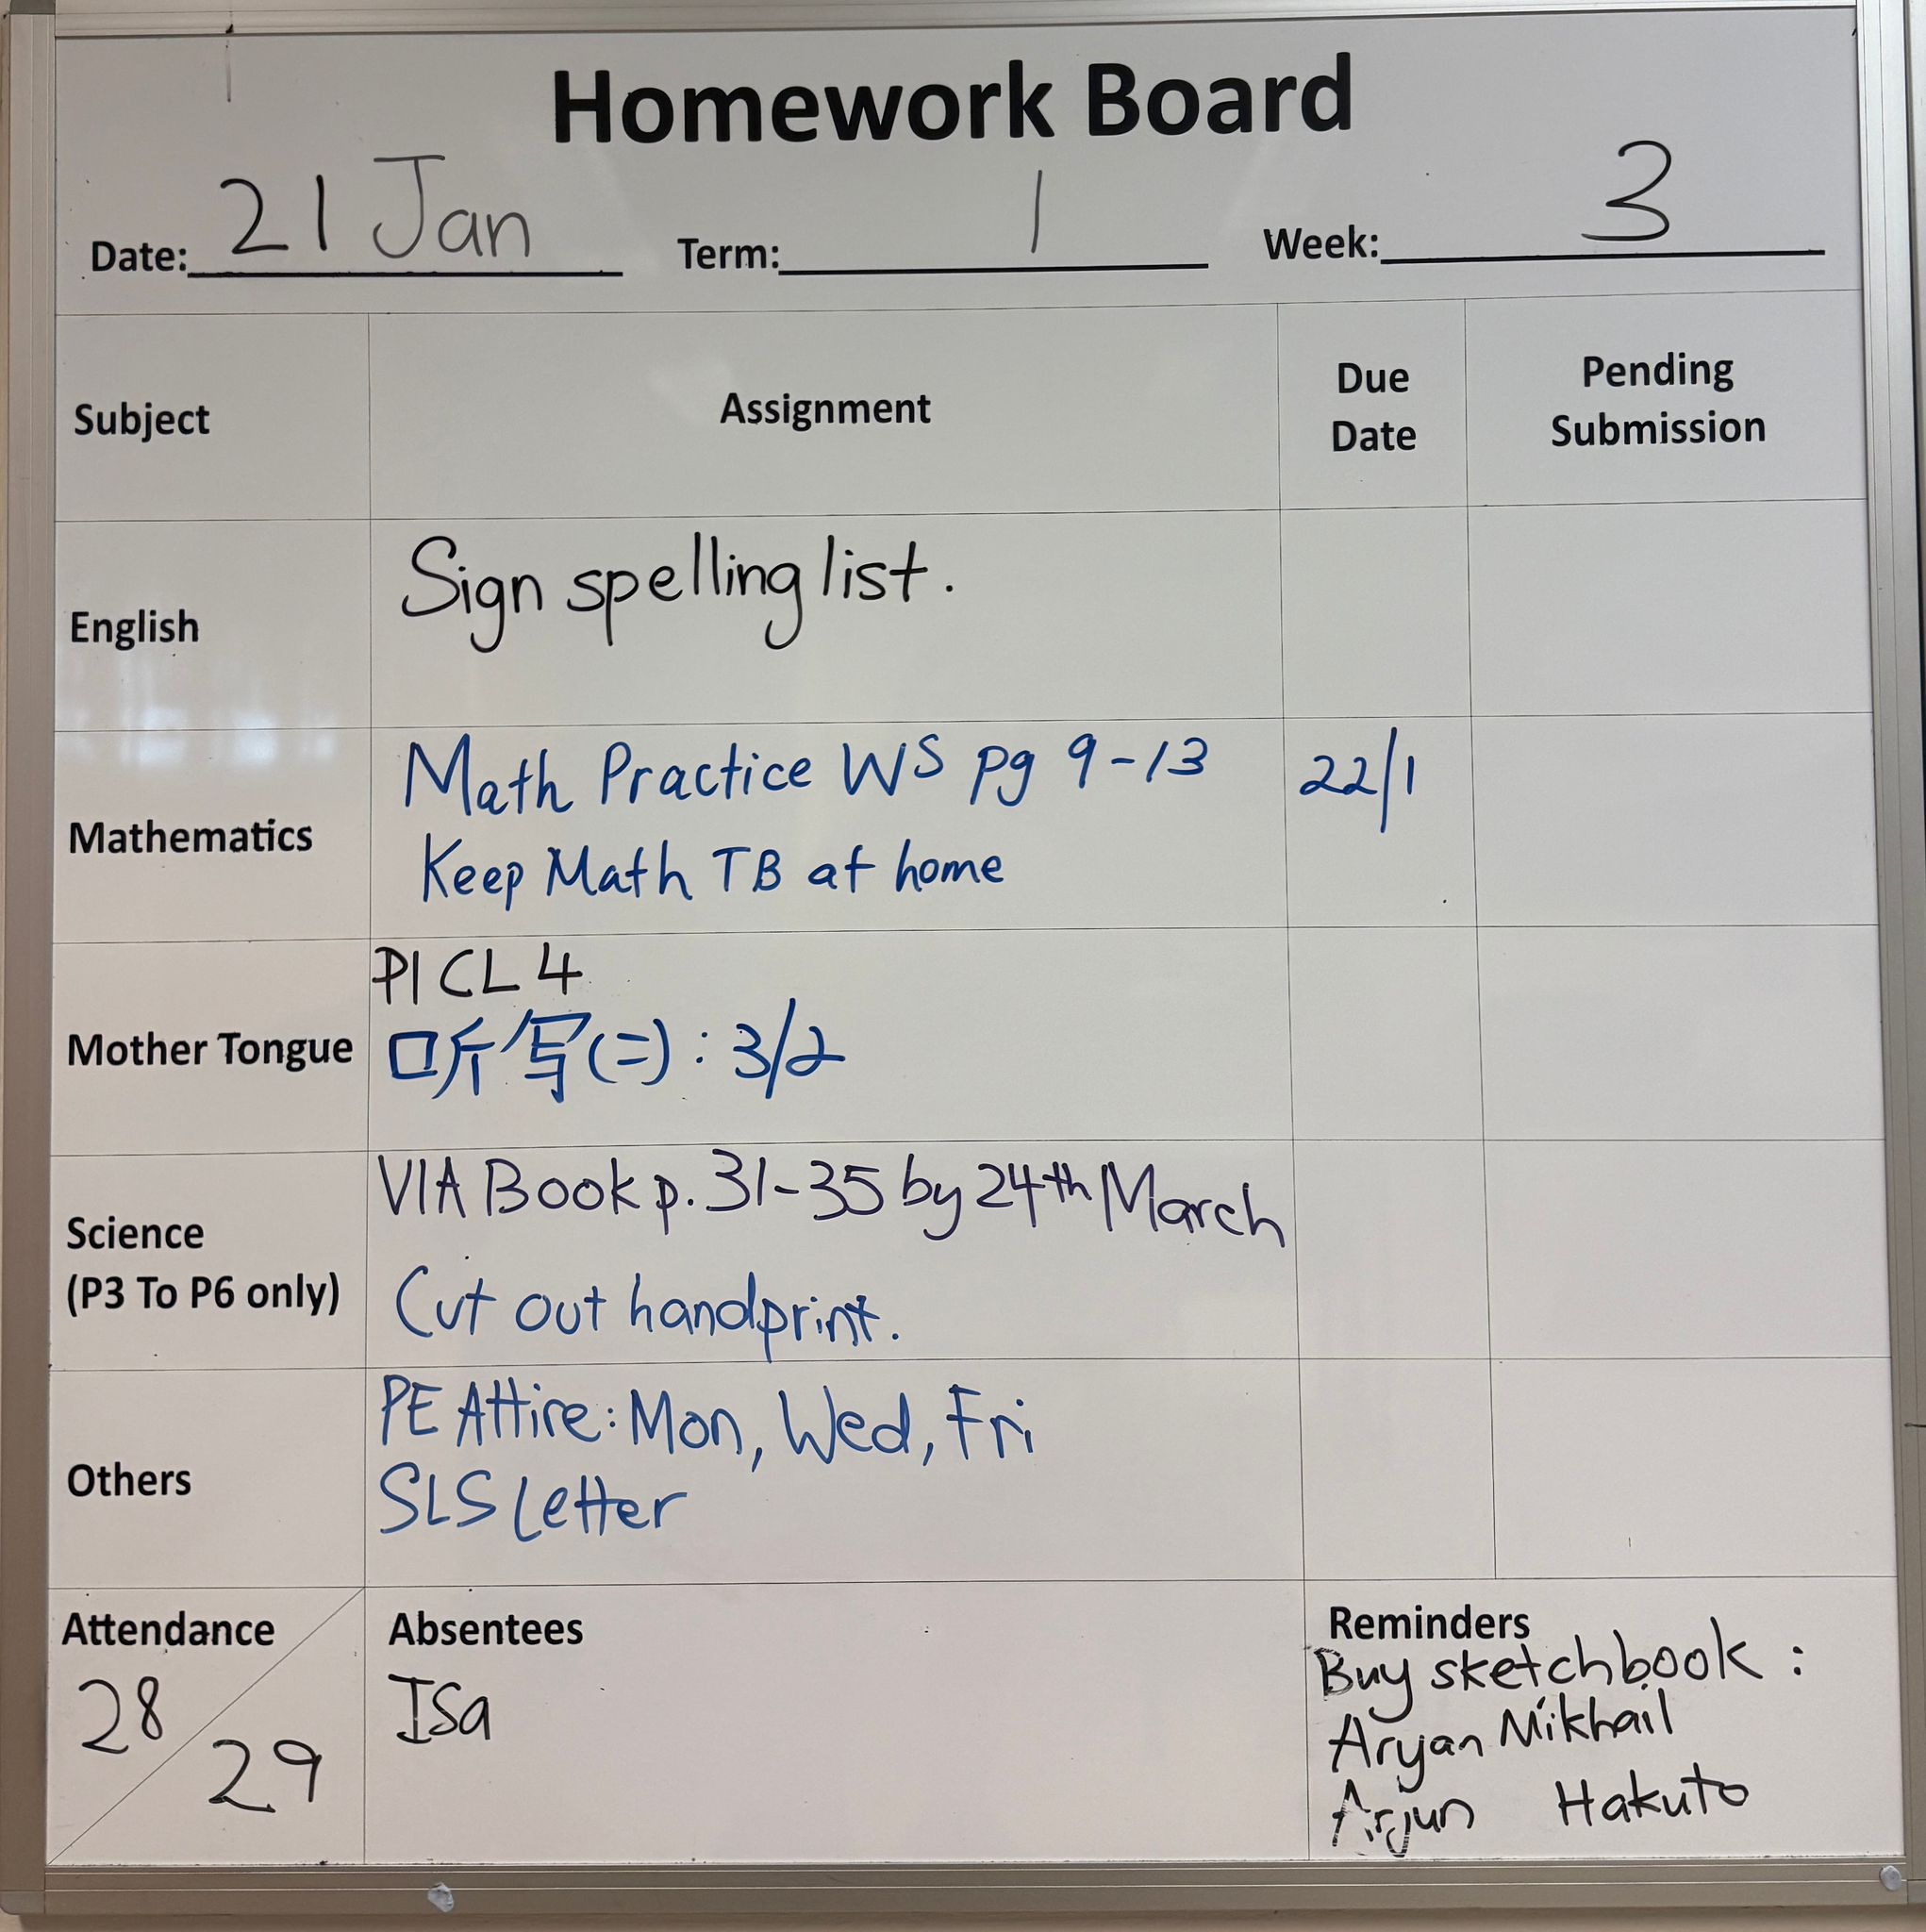 Homework Board
Date: 21 Jan Term: 1 Week: 3
Subject Assignment Due Date Pending Submission
English Sign spelling list.
Mathematics Math Practice WS pg 9-13 22/1
Keep Math TB at home
Mother Tongue P1 CL 4
听写(二): 3/2
Science (P3 To P6 only) VIA Book p. 31-35 by 24th March
Cut out handprint.
Others PE Attire: Mon, Wed, Fri
SLS Letter
Attendance 28/29
Absentees
Isa
Reminders
Buy sketchbook :
Aryan Mikhail
Arjun Hakuto